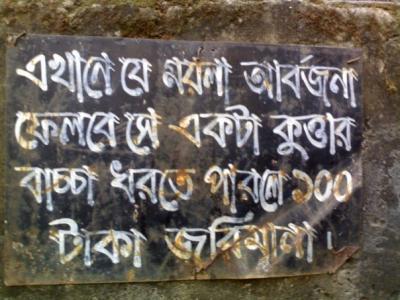 এখানে যে ময়লা আবর্জনা
ফেলবে সে একটা কুত্তার
বাচ্চা ধরতে পারলে ১০০
টাকা জরিমানা।